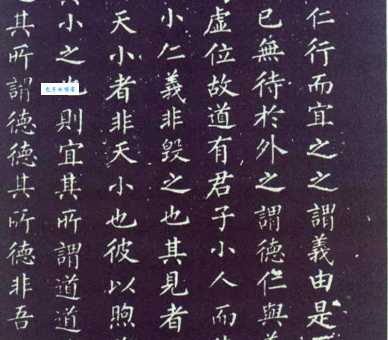 仁行而宜之之謂義由是
已無待於外之謂德仁與
虛位故道有君子小人而
小仁義非毀之也其見者
天小者非天小也彼以煦
小之也則宜其所謂道道
其所謂德德其所德非吾